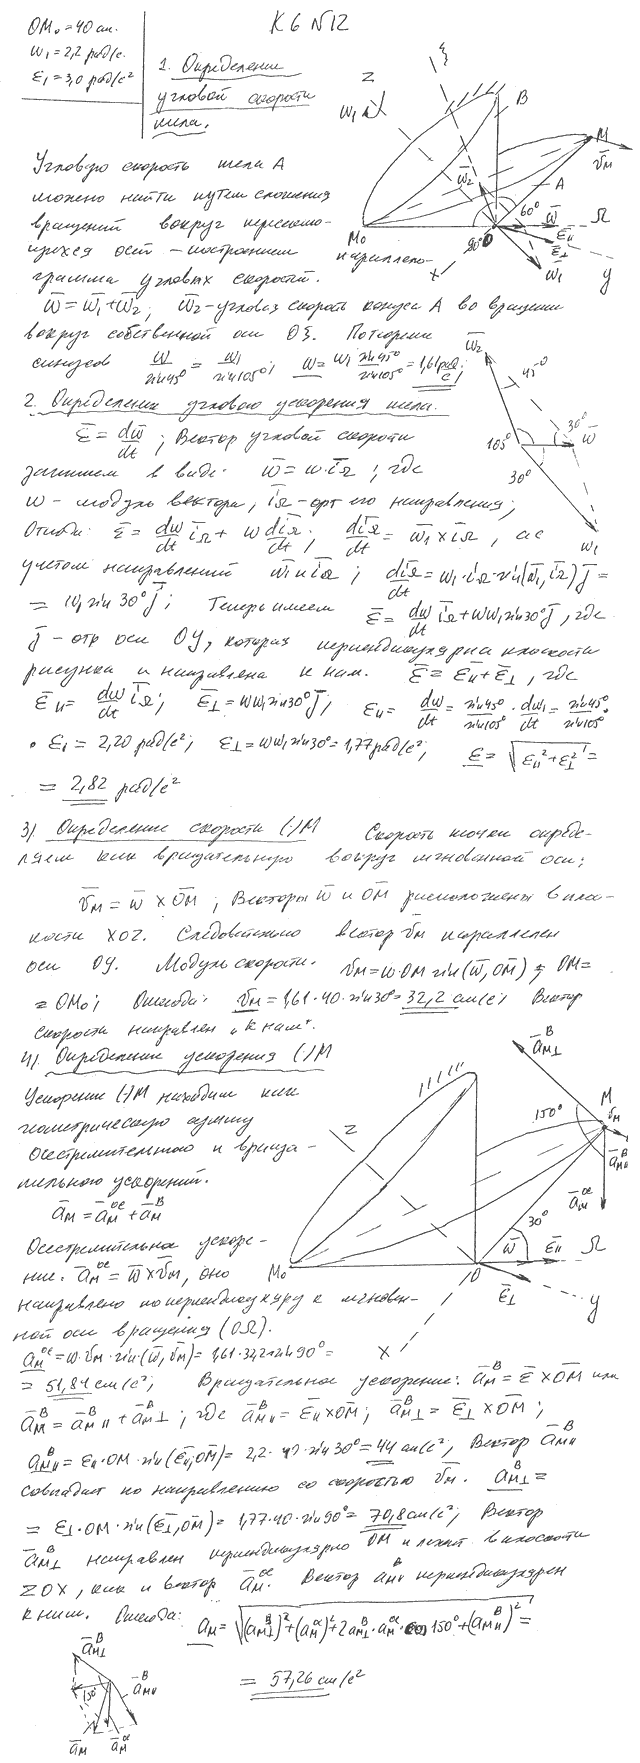 К6 №12
OM₀ = 40 см.
ω₁ = 2,2 рад/с.
ε₁ = 3,0 рад/с²
1. Определение
угловой скорости
тела.
Угловую скорость тела А
можно найти путем сложения
вращений вокруг пересекающихся осей – построением параллелограмма угловых скоростей.
ω̄ = ω̄₁ + ω̄₂; ω̄₂ – угловая скорость конуса А во вращении
вокруг собственной оси Oξ. По теореме
синусов ω/sin45° = ω₁/sin105°; ω = ω₁ sin45°/sin105° = 1,61 рад/с;
2. Определение углового ускорения тела.
ε̄ = dω̄/dt; Вектор угловой скорости
запишем в виде: ω̄ = ω·i̅Ω; где
ω – модуль вектора, i̅Ω – орт его направления;
Отсюда: ε̄ = dω/dt i̅Ω + ω di̅Ω/dt; di̅Ω/dt = ω̄₁ × i̅Ω, а с
учетом направлений ω̄₁ и i̅Ω; di̅Ω/dt = ω₁·iΩ·sin(ω̄₁, i̅Ω) j̅ =
= ω₁ sin30° j̅; Теперь имеем ε̄ = dω/dt i̅Ω + ωω₁ sin30° j̅, где
j̅ – орт оси OY, которая перпендикулярна плоскости
рисунка и направлена к нам. ε̄ = ε̄∥ + ε̄⊥, где
ε̄∥ = dω/dt i̅Ω; ε̄⊥ = ωω₁ sin30° j̅; ε∥ = dω/dt = sin45°/sin105° · dω₁/dt = sin45°/sin105° ·
· ε₁ = 2,20 рад/с²; ε⊥ = ωω₁ sin30° = 1,77 рад/с²; ε = √(ε∥² + ε⊥²) =
= 2,82 рад/с²
3). Определение скорости (·)M Скорость точки определяем как вращательную вокруг мгновенной оси;
v̄M = ω̄ × O̅M̅; Векторы ω̄ и O̅M̅ расположены в плоскости XOZ. Следовательно вектор v̄M параллелен
оси OY. Модуль скорости. vM = ω·OM sin(ω̄, O̅M̅); OM =
= OM₀; Отсюда: vM = 1,61·40·sin30° = 32,2 см/с; Вектор
скорости направлен „к нам“.
4). Определение ускорения (·)M
Ускорение (·)M находим как
геометрическую сумму
осестремительного и вращательного ускорений.
āM = āM ос + āM в
Осестремительное ускорение. āM ос = ω̄ × v̄M, оно
направлено по перпендикуляру к мгновенной оси вращения (OΩ).
aM ос = ω·vM·sin(ω̄, v̄M) = 1,61·32,2·sin90° =
= 51,84 см/с²; Вращательное ускорение: āM в = ε̄ × O̅M̅ или
āM в = āM∥ в + āM⊥ в; где āM∥ в = ε̄∥ × O̅M̅; āM⊥ в = ε̄⊥ × O̅M̅;
aM∥ в = ε∥·OM·sin(ε̄∥; O̅M̅) = 2,2·40·sin30° = 44 см/с²; Вектор āM∥ в
совпадает по направлению со скоростью v̄M. aM⊥ в =
= ε⊥·OM·sin(ε̄⊥, O̅M̅) = 1,77·40·sin90° = 70,8 см/с²; Вектор
āM⊥ в направлен перпендикулярно OM и лежит в плоскости
ZOX, как и вектор āM ос. Вектор aM∥ в перпендикулярен
к ним. Отсюда: aM = √((aM⊥ в)² + (aM ос)² + 2aM⊥ в·aM ос·cos150° + (aM∥ в)²) =
= 57,26 см/с²
ξ
Z
B
M
ω₁
v̄M
ω̄₂
A
60°
M₀
90°
O
ω̄
Ω
ε̄∥
ε̄⊥
ω̄₁
X
y
ω̄₂
45°
30°
105°
ω̄
30°
ω₁
āM⊥ в
150°
M
v̄M
āM∥ в
āM ос
Z
30°
M₀
O
ω̄
ε̄∥
Ω
ε̄⊥
X
y
āM⊥ в
150°
āM∥ в
āM
āM ос